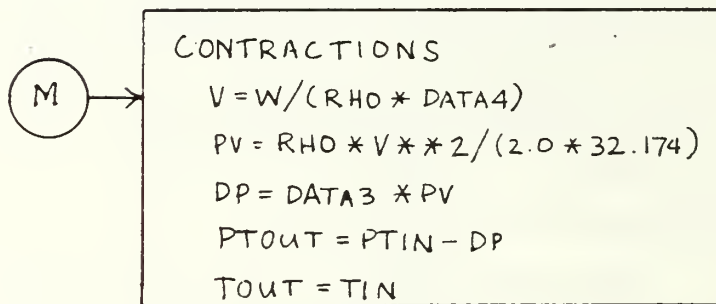 M
CONTRACTIONS
V=W/(RHO * DATA4)
PV = RHO * V * * 2/(2.0 * 32.174)
DP = DATA3 * PV
PTOUT = PTIN - DP
TOUT = TIN